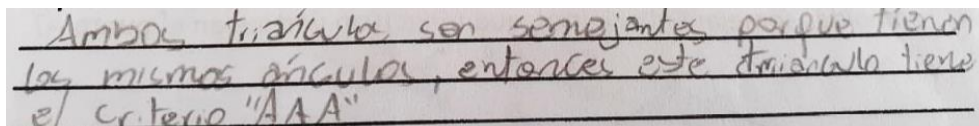 Ambos triáículos son semejantes porque tienen
los mismos áículos, entonces este tmiánculo tiene
el criterio "AAA"